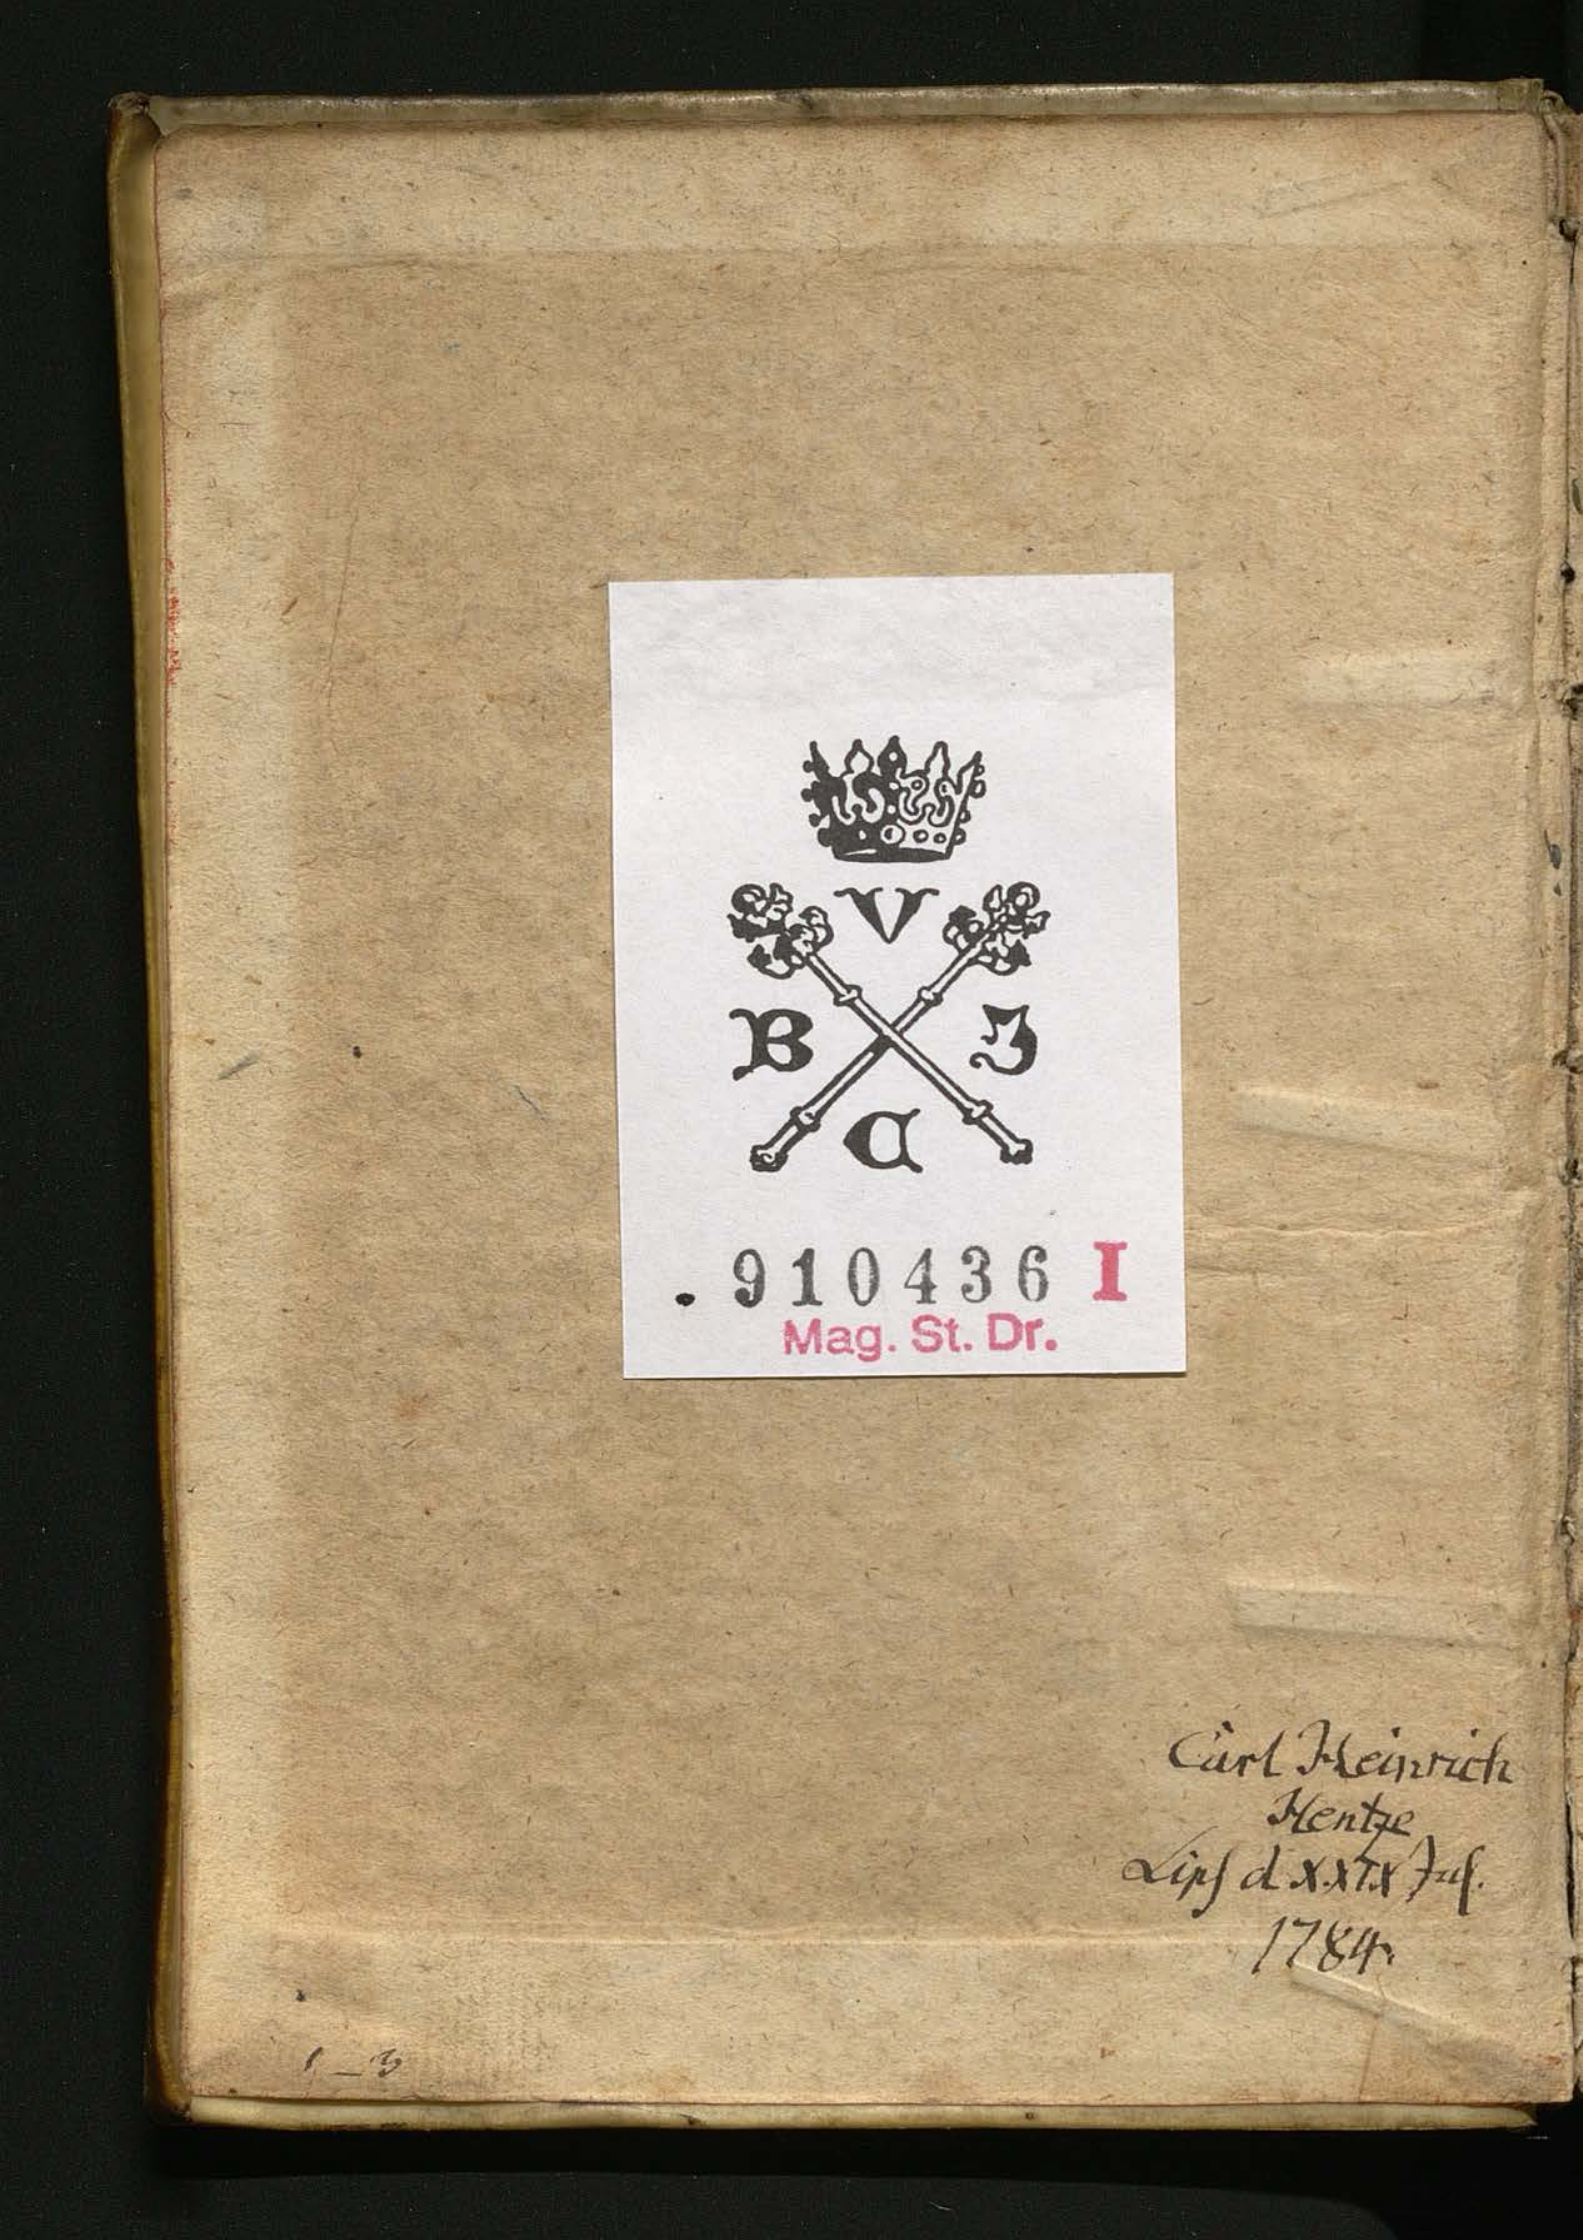 V
B J
C
. 910436 I
Mag. St. Dr.
Carl Heinrich
Hentze
Lips d XXIX Jul.
1784.
1_3